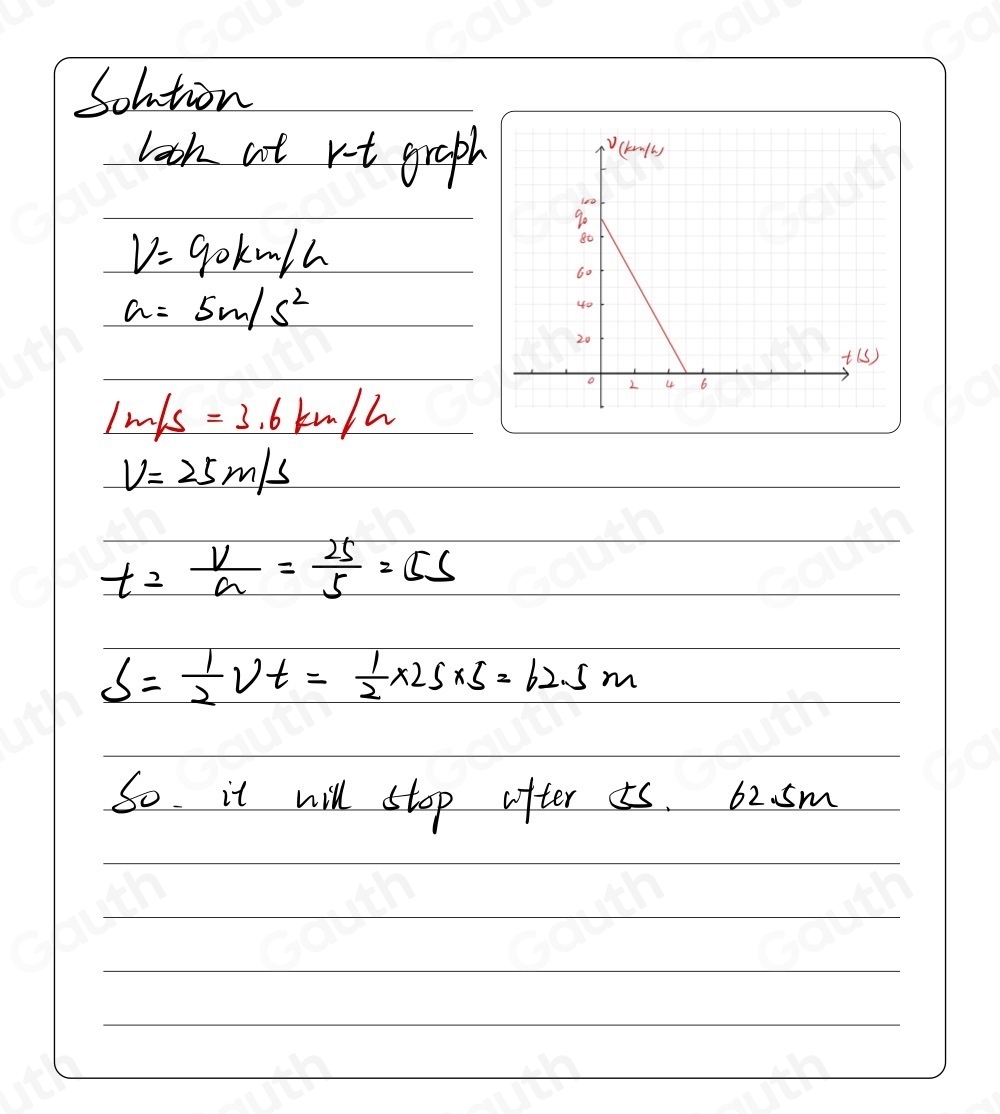 Solution
look at v-t graph
V = 90km/h
a = 5m/s²
1m/s = 3.6 km/h
V = 25m/s
t = V/a = 25/5 = 5S
S = 1/2 Vt = 1/2 × 25 × 5 = 62.5 m
So. it will stop after 5S. 62.5m
V(km/h)
100
90
80
60
40
20
0 2 4 6
t(S)
Gauth